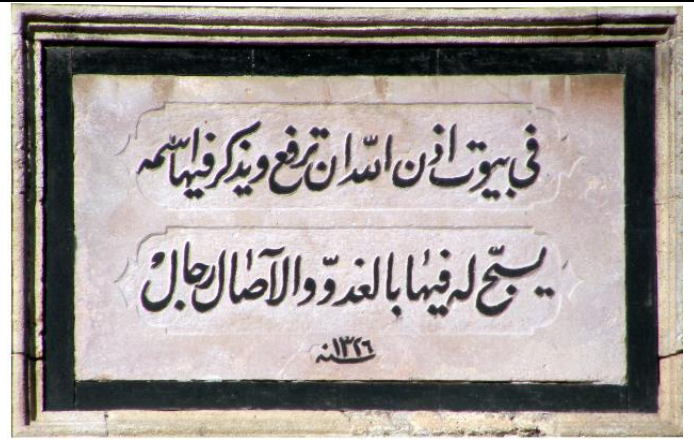 في بيوت اذن الله ان ترفع ويذكر فيها اسمه
يسبّح له فيها بالغدوّ والآصال رجالٌ
سنه ١٣٢٦